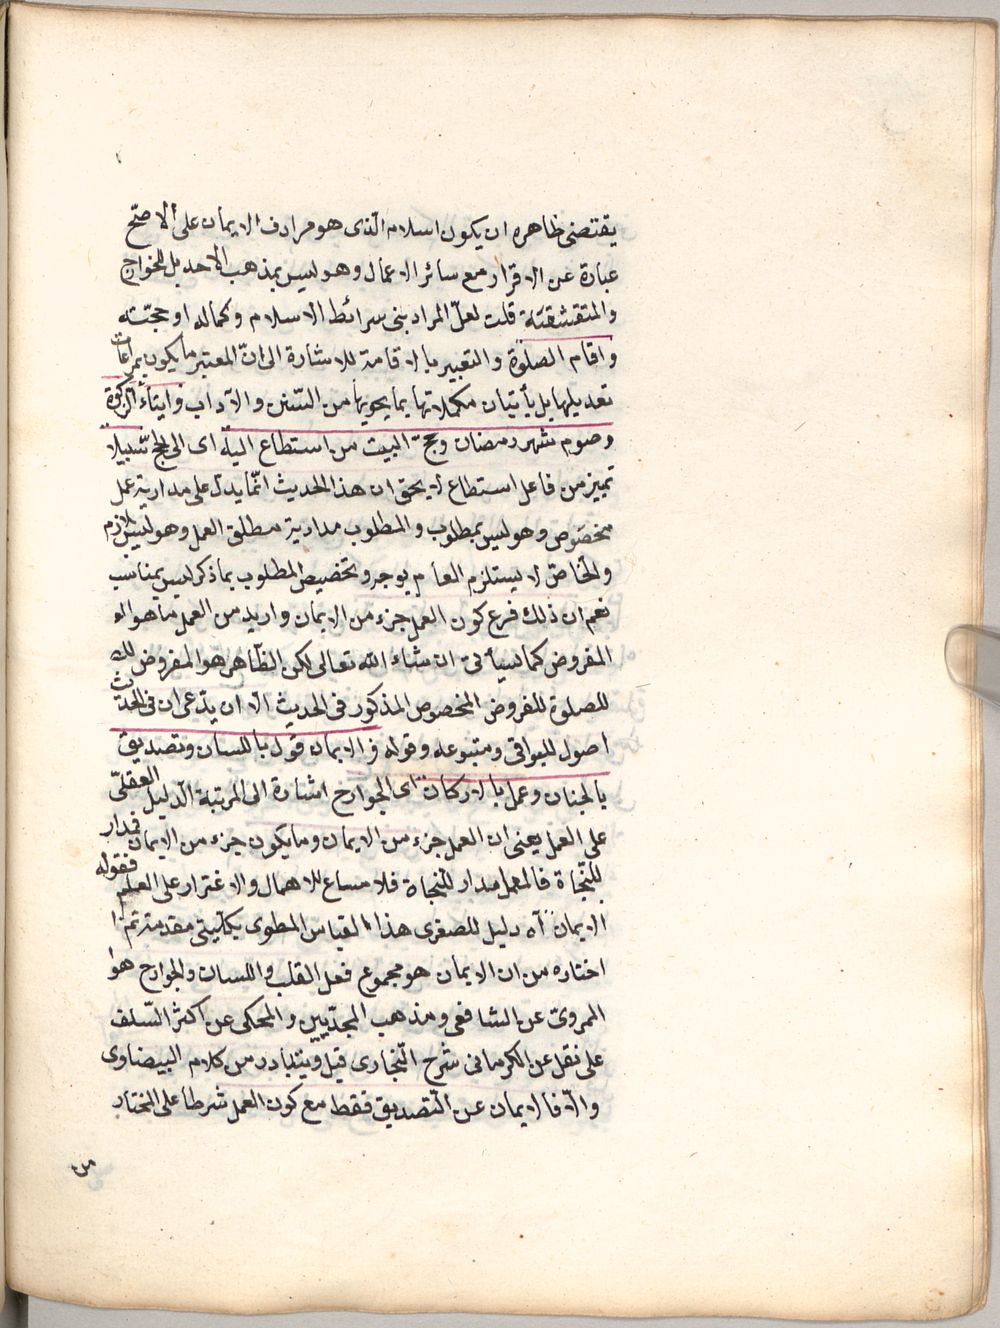 يقتضى ظاهره ان يكون اسلام الّذى هو مرادف الايمان على الاصحّ
عبارة عن الاقرار مع سائر الاعمال وهو ليس بمذهب لاحد بل للخوارج
والمتقشقشة قلت لعلّ المراد بنى سرائط الاسلام وكماله او حجّته
واقام الصلوة والتعبير بالاقامة للاشارة الى انّ المعتبر ما يكون بمراعات
تعديلها بل بأتيان مكملاتها بما يحويها من السّنن والآداب وايتاء الزكوة
وصوم شهر رمضان وحجّ البيت من استطاع اليه اى الى الحج سبيلا
تميز من فاعل استطاع لا يخفى ان هذا الحديث انّما يدلّ على مدارية عمل
مخصوص وهو ليس بمطلوب والمطلوب مدارية مطلق العمل وهو ليس بلازم
والخاصّ لا يستلزم العام بوجه وتخصيص المطلوب بما ذكر ليس بمناسب
نعم ان ذلك فرع كون العمل جزء من الايمان واريد من العمل ما هو
المفروض كما سيأتى ان شاء الله تعالى لكن الظّاهر هو المفروض
للصلوة للفروض المخصوص المذكور فى الحديث الّا ان يدّعى ان فى الحديث
اصول للبواقى ومتبوعه وقوله و الايمان قول باللسان وتصديق
بالجنان وعمل بالاركان اى الجوارح اشارة الى المرتبة الدّليل العقلىّ
على العمل يعنى ان العمل جزء من الايمان وما يكون جزء من الايمان فمدار
للنّجاة فالعمل مدار للنّجاة فلا مساغ للاهمال والاغترار على العلم فقوله
الايمان آه دليل للصغرى هذا القياس المطوى بكلّيتى مقدمته ثم
اختاره من ان الايمان هو مجموع فعل القلب واللسان والجوارح هو
المروىّ عن الشافعى ومذهب المحدّثين والمحكى عن اكثر السّلف
على نقل عن الكرمانى شرح البّخارى قيل ويتبادر من كلام البيضاوى
والّا فالايمان عن التّصديق فقط مع كون العمل شرطا على المختار
من